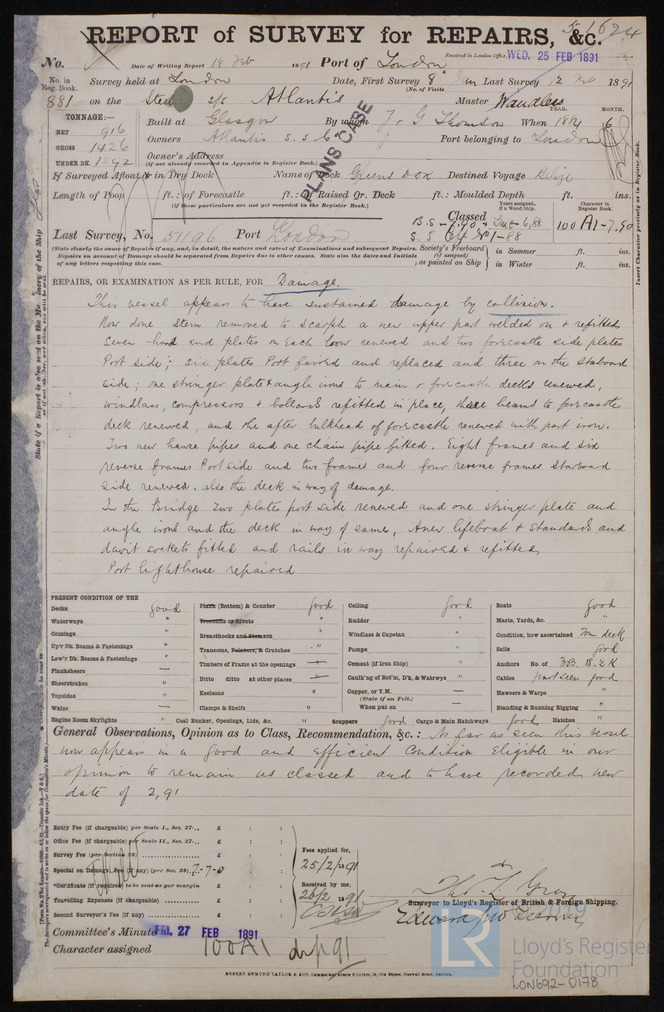 51624
REPORT of SURVEY for REPAIRS, &c.
No. Date of Writing Report 18 Feb 1891 Port of London Received in London Office WED. 25 FEB 1891
No. in Reg. Book. Survey held at London Date, First Survey 8 Jan Last Survey 12 Feb 1891
(No. of Visits
881 on the Steel S/S Atlantis Master Wandless
TONNAGE:— Built at Glasgow By whom J. & G. Thomson When 1884 6 YEAR. MONTH.
NET 916
GROSS 1426 Owners Atlantis S.S. Co Port belonging to London
UNDER DK. 1292 Owner's Address
(if not already recorded in Appendix to Register Book.)
If Surveyed Afloat or in Dry Dock Name of Dock Green Dock Destined Voyage Belize
Length of Poop ft.: of Forecastle ft.: Raised Qr. Deck ft.: Moulded Depth ft. ins.
(If these particulars are not yet recorded in the Register Book.)
PLANS CASE
Classed Years assigned, if a Wood Ship. Character in Register Book.
100 A1-7,90
Last Survey, No. 51196 Port London
(State clearly the cause of Repairs if any, and, in detail, the nature and extent of Examinations and subsequent Repairs.
Repairs on account of Damage should be separated from Repairs due to other causes. State also the dates and Initials
of any letters respecting this case.
Society's Freeboard (if assigned) as painted on Ship in Summer ft. ins.
in Winter ft. ins.
REPAIRS, OR EXAMINATION AS PER RULE, FOR Damage.
This vessel appears to have sustained damage by collision.
Now done stem removed to scarph a new upper part welded on & refitted
Seven hood end plates on each bow renewed and two forecastle side plates
Port side; six plates Port faired and replaced and three on the Starboard
side; one stringer plate & angle irons to main & forecastle decks renewed,
windlass, compressors & bollards refitted in place, three beams to forecastle
deck renewed, and the after bulkhead of forecastle renewed with part iron.
Two new hawse pipes and one chain pipe fitted. Eight frames and six
reverse frames Port side and two frames and four reverse frames Starboard
side renewed. also the deck in way of damage.
In the Bridge two plates port side renewed and one stringer plate and
angle irons and the deck in way of same, A new lifeboat & standards and
davit sockets fitted and rails in way repaired & refitted
Port lighthouse repaired
PRESENT CONDITION OF THE
Decks good Plank (Bottom) & Counter good Ceiling good Boats good
Waterways " Treenails or Rivets " Rudder " Masts, Yards, &c. "
Comings " Breasthooks and Stemson " Windlass & Capstan " Condition, how ascertained Fm deck
Up'r Dk. Beams & Fastenings " Transoms, Pointers, & Crutches " Pumps " Sails good
Low'r Dk. Beams & Fastenings " Timbers of Frame at the openings — Cement (if Iron Ship) " Anchors No. of 3B. 1S. 2K
Planksheers — Ditto ditto at other places — Caulk'ng of Bot'm, D'k, & Waterways " Cables part seen good
Sheerstrakes " Keelsons " Copper, or Y.M. — Hawsers & Warps "
Topsides — (State if on Felt.)
Wales — Clamps & Shelfs " When put on — Standing & Running Rigging "
Engine Room Skylights " Coal Bunker, Openings, Lids, &c. " Scuppers good Cargo & Main Hatchways good Hatches "
General Observations, Opinion as to Class, Recommendation, &c.: As far as seen this vessel
now appears in a good and efficient condition Eligible in our
opinion to remain as classed and to have recorded new
date of 2,91
Entry Fee (if chargeable) per Scale I., Sec. 27... £ : :
Office Fee (if chargeable) per Scale II., Sec. 27... £ : :
Survey Fee (per Section 28) £ : :
Special on Damage Fee (if any) (per Sec. 28) 2-7-0
Certificate (if required) to be sent as per margin £ : :
Travelling Expenses (if chargeable) £ : :
Second Surveyor's Fee (if any) £ : :
Fees applied for, 25/2/1891
Received by me, 26/2 1891
Surveyor to Lloyd's Register of British & Foreign Shipping.
Committee's Minute FRI. 27 FEB 1891
Character assigned 100A1
ROBERT EDMUND TAYLOR & SON, Commercial Steam Printers, 19, Old Street, Goswell Road, London.
LR
© 2019
Lloyd's Register
Foundation
LON692-0178